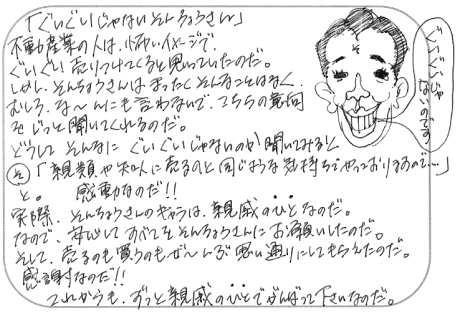 「ぐいぐいじゃないそんちょうさん」
不動産業の人は、小わいイメージで、
ぐいぐい売りつけてくると思っていたのだ。
しかし、そんちょうさんはまったくそんなことはなく、
むしろ、な〜んにも言わないで、こちらの意向
をじっと聞いてくれるのだ。
どうしてそんなにぐいぐいじゃないのか聞いてみると
そ「親類や知人に売るのと同じような気持ちでやっておりるので…」
と。 感動なのだ!!
実際、そんちょうさんのキャラは、親戚のひとなのだ。
なので、安心してすべてをそんちょうさんにお願いしたのだ。
そして、売るのも買うのもぜ〜んぶ思い通りにしてもらえたのだ。
感謝なのだ!!
これからも、ずっと親戚のひとでがんばって下さいなのだ。
ぐいぐいじゃ
ないのです
そ